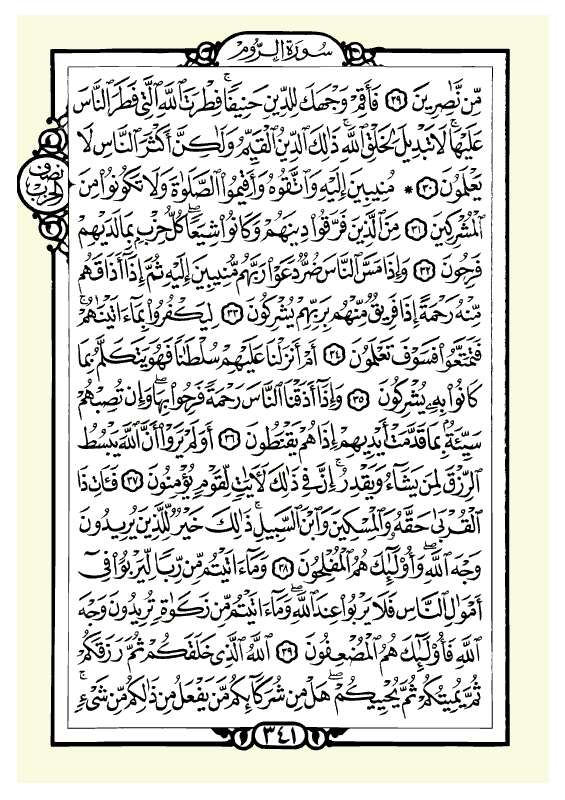 سُورَةُ الرُّومِ
مِّن نَّٰصِرِينَ ٢٩ فَأَقِمْ وَجْهَكَ لِلدِّينِ حَنِيفًا ۚ فِطْرَتَ ٱللَّهِ ٱلَّتِى فَطَرَ ٱلنَّاسَ
عَلَيْهَا ۚ لَا تَبْدِيلَ لِخَلْقِ ٱللَّهِ ۚ ذَٰلِكَ ٱلدِّينُ ٱلْقَيِّمُ وَلَٰكِنَّ أَكْثَرَ ٱلنَّاسِ لَا
يَعْلَمُونَ ٣٠ * مُنِيبِينَ إِلَيْهِ وَٱتَّقُوهُ وَأَقِيمُوا۟ ٱلصَّلَوٰةَ وَلَا تَكُونُوا۟ مِنَ
ٱلْمُشْرِكِينَ ٣١ مِنَ ٱلَّذِينَ فَرَّقُوا۟ دِينَهُمْ وَكَانُوا۟ شِيَعًا ۖ كُلُّ حِزْبٍۭ بِمَا لَدَيْهِمْ
فَرِحُونَ ٣٢ وَإِذَا مَسَّ ٱلنَّاسَ ضُرٌّ دَعَوْا۟ رَبَّهُم مُّنِيبِينَ إِلَيْهِ ثُمَّ إِذَآ أَذَاقَهُم
مِّنْهُ رَحْمَةً إِذَا فَرِيقٌ مِّنْهُم بِرَبِّهِمْ يُشْرِكُونَ ٣٣ لِيَكْفُرُوا۟ بِمَآ ءَاتَيْنَٰهُمْ ۚ
فَتَمَتَّعُوا۟ فَسَوْفَ تَعْلَمُونَ ٣٤ أَمْ أَنزَلْنَا عَلَيْهِمْ سُلْطَٰنًا فَهُوَ يَتَكَلَّمُ بِمَا
كَانُوا۟ بِهِۦ يُشْرِكُونَ ٣٥ وَإِذَآ أَذَقْنَا ٱلنَّاسَ رَحْمَةً فَرِحُوا۟ بِهَا ۖ وَإِن تُصِبْهُمْ
سَيِّئَةٌۢ بِمَا قَدَّمَتْ أَيْدِيهِمْ إِذَا هُمْ يَقْنَطُونَ ٣٦ أَوَلَمْ يَرَوْا۟ أَنَّ ٱللَّهَ يَبْسُطُ
ٱلرِّزْقَ لِمَن يَشَآءُ وَيَقْدِرُ ۚ إِنَّ فِى ذَٰلِكَ لَءَايَٰتٍ لِّقَوْمٍ يُؤْمِنُونَ ٣٧ فَـَٔاتِ ذَا
ٱلْقُرْبَىٰ حَقَّهُۥ وَٱلْمِسْكِينَ وَٱبْنَ ٱلسَّبِيلِ ۚ ذَٰلِكَ خَيْرٌ لِّلَّذِينَ يُرِيدُونَ
وَجْهَ ٱللَّهِ ۖ وَأُو۟لَٰٓئِكَ هُمُ ٱلْمُفْلِحُونَ ٣٨ وَمَآ ءَاتَيْتُم مِّن رِّبًا لِّيَرْبُوَا۟ فِىٓ
أَمْوَٰلِ ٱلنَّاسِ فَلَا يَرْبُوا۟ عِندَ ٱللَّهِ ۖ وَمَآ ءَاتَيْتُم مِّن زَكَوٰةٍ تُرِيدُونَ وَجْهَ
ٱللَّهِ فَأُو۟لَٰٓئِكَ هُمُ ٱلْمُضْعِفُونَ ٣٩ ٱللَّهُ ٱلَّذِى خَلَقَكُمْ ثُمَّ رَزَقَكُمْ
ثُمَّ يُمِيتُكُمْ ثُمَّ يُحْيِيكُمْ ۖ هَلْ مِن شُرَكَآئِكُم مَّن يَفْعَلُ مِن ذَٰلِكُم مِّن شَىْءٍ ۚ
نصف
الحزب
٣٤١